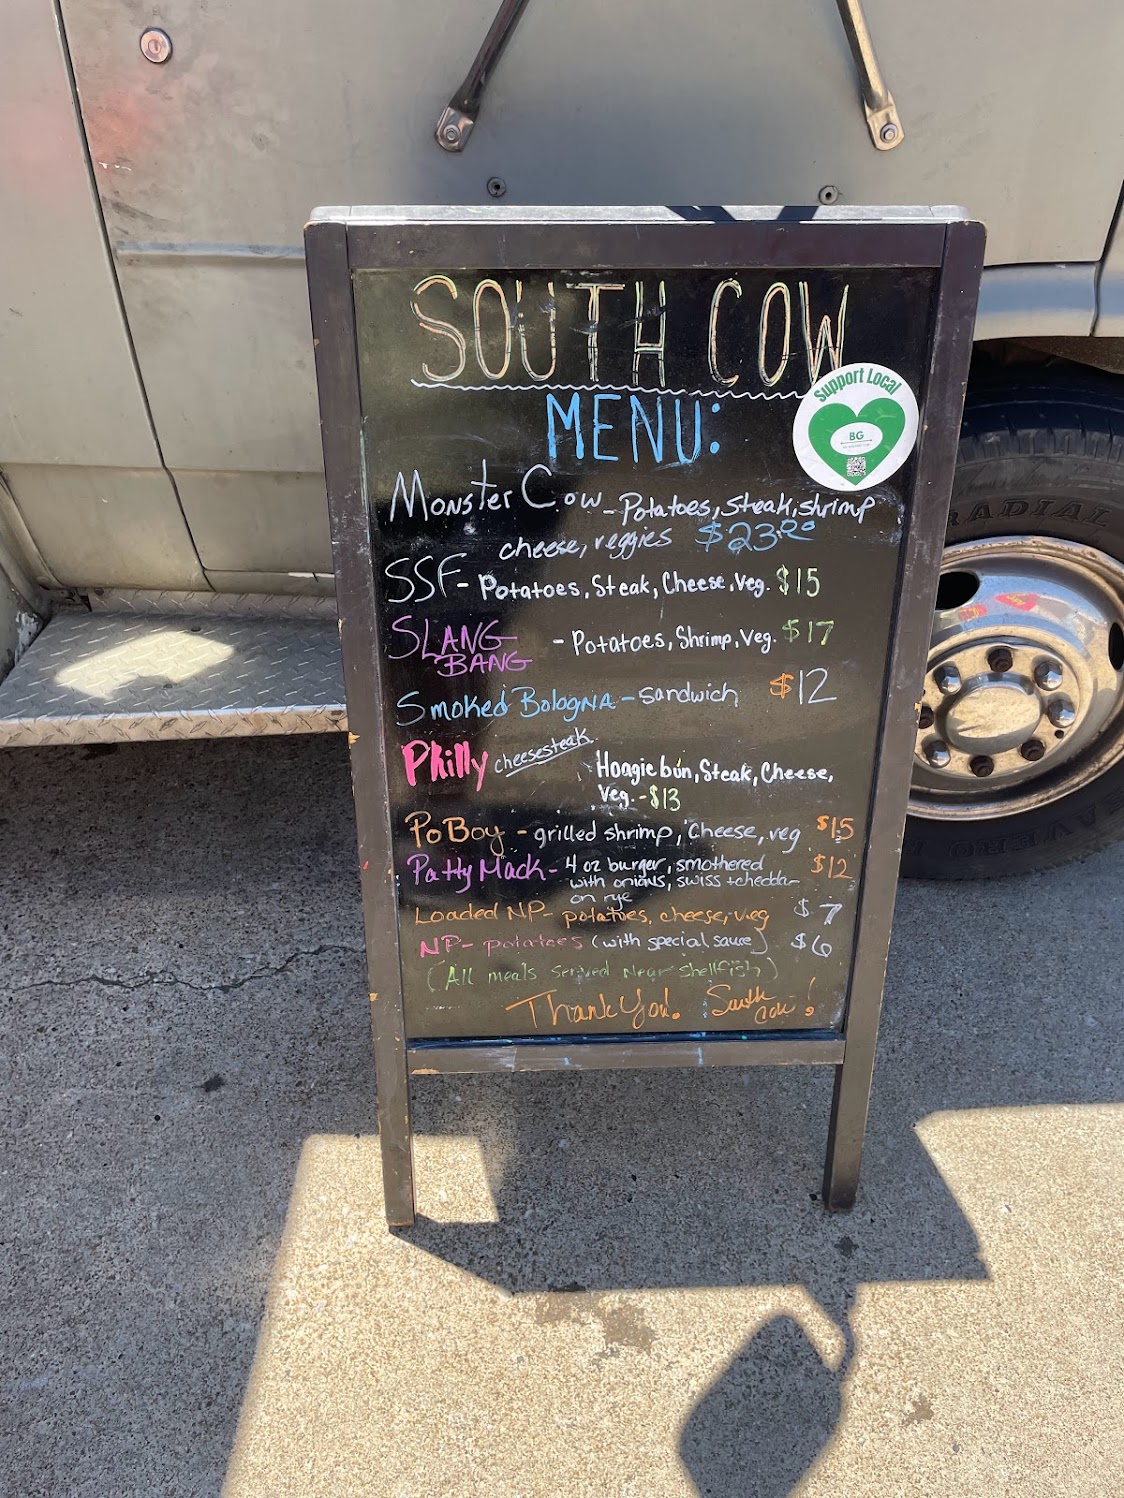 SOUTH COW
MENU:
Support Local
BG
Monster Cow - Potatoes, Steak, shrimp
cheese, veggies $23.00
SSF - Potatoes, Steak, Cheese, Veg. $15
SLANG
BANG - Potatoes, Shrimp, Veg. $17
Smoked Bologna - sandwich $12
Philly cheesesteak Hoagie bun, Steak, Cheese,
Veg. - $13
Po Boy - grilled shrimp, Cheese, veg $15
Patty Mack - 4 oz burger, smothered $12
with onions, swiss + chedda
on rye
Loaded NP - potatoes, cheese, veg $7
NP - potatoes (with special sauce) $6
(All meals served Near Shellfish)
Thank You! South
Cow!
RADIAL